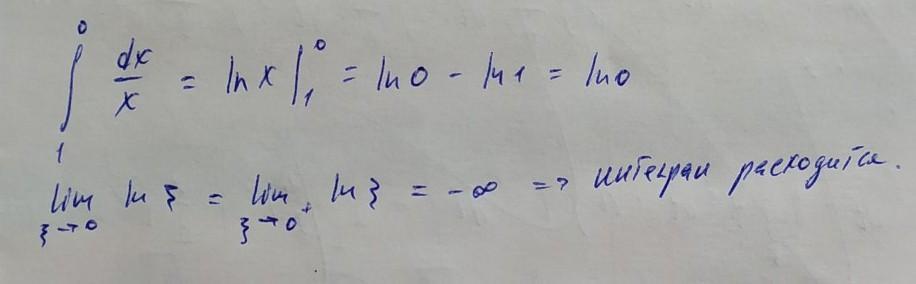 ∫₁⁰ dx/x = ln x |₁⁰ = ln 0 - ln 1 = ln 0
lim ξ→0 ln ξ = lim ξ→0+ ln ξ = -∞ => интеграл расходится.